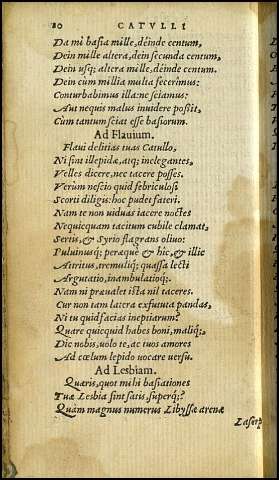 20 CATVLLI
Da mi basia mille, deinde centum,
Dein mille altera, dein secunda centum,
Dein usq; altera mille, deinde centum.
Dein cùm millia multa fecerimus:
Conturbabimus illa: ne sciamus:
Aut nequis malus inuidere possit,
Cùm tantum sciat esse basiorum.
Ad Flauium.
Flaui delitias tuas Catullo,
Ni sint illepidæ, atq; inelegantes,
Velles dicere, nec tacere posses.
Verum nescio quid febriculosi
Scorti diligis: hoc pudet fateri.
Nam te non uiduas iacere noctes
Nequicquam tacitum cubile clamat,
Sertis, & Syrio flagrans oliuo:
Puluinusq; peræquè & hic, & illic
Attritus, tremuliq; quassa lecti
Argutatio, inambulatioq.
Nam ni præualet ista nil tacere.
Cur non tam latera exfututa pandas,
Ni tu quid facias ineptiarum?
Quare quicquid habes boni, maliq;,
Dic nobis, uolo te, ac tuos amores
Ad cœlum lepido uocare uersu.
Ad Lesbiam.
Quæris, quot mihi basiationes
Tuæ Lesbia sint satis, superq;?
Quàm magnus numerus Libyssæ arenæ
Laserp